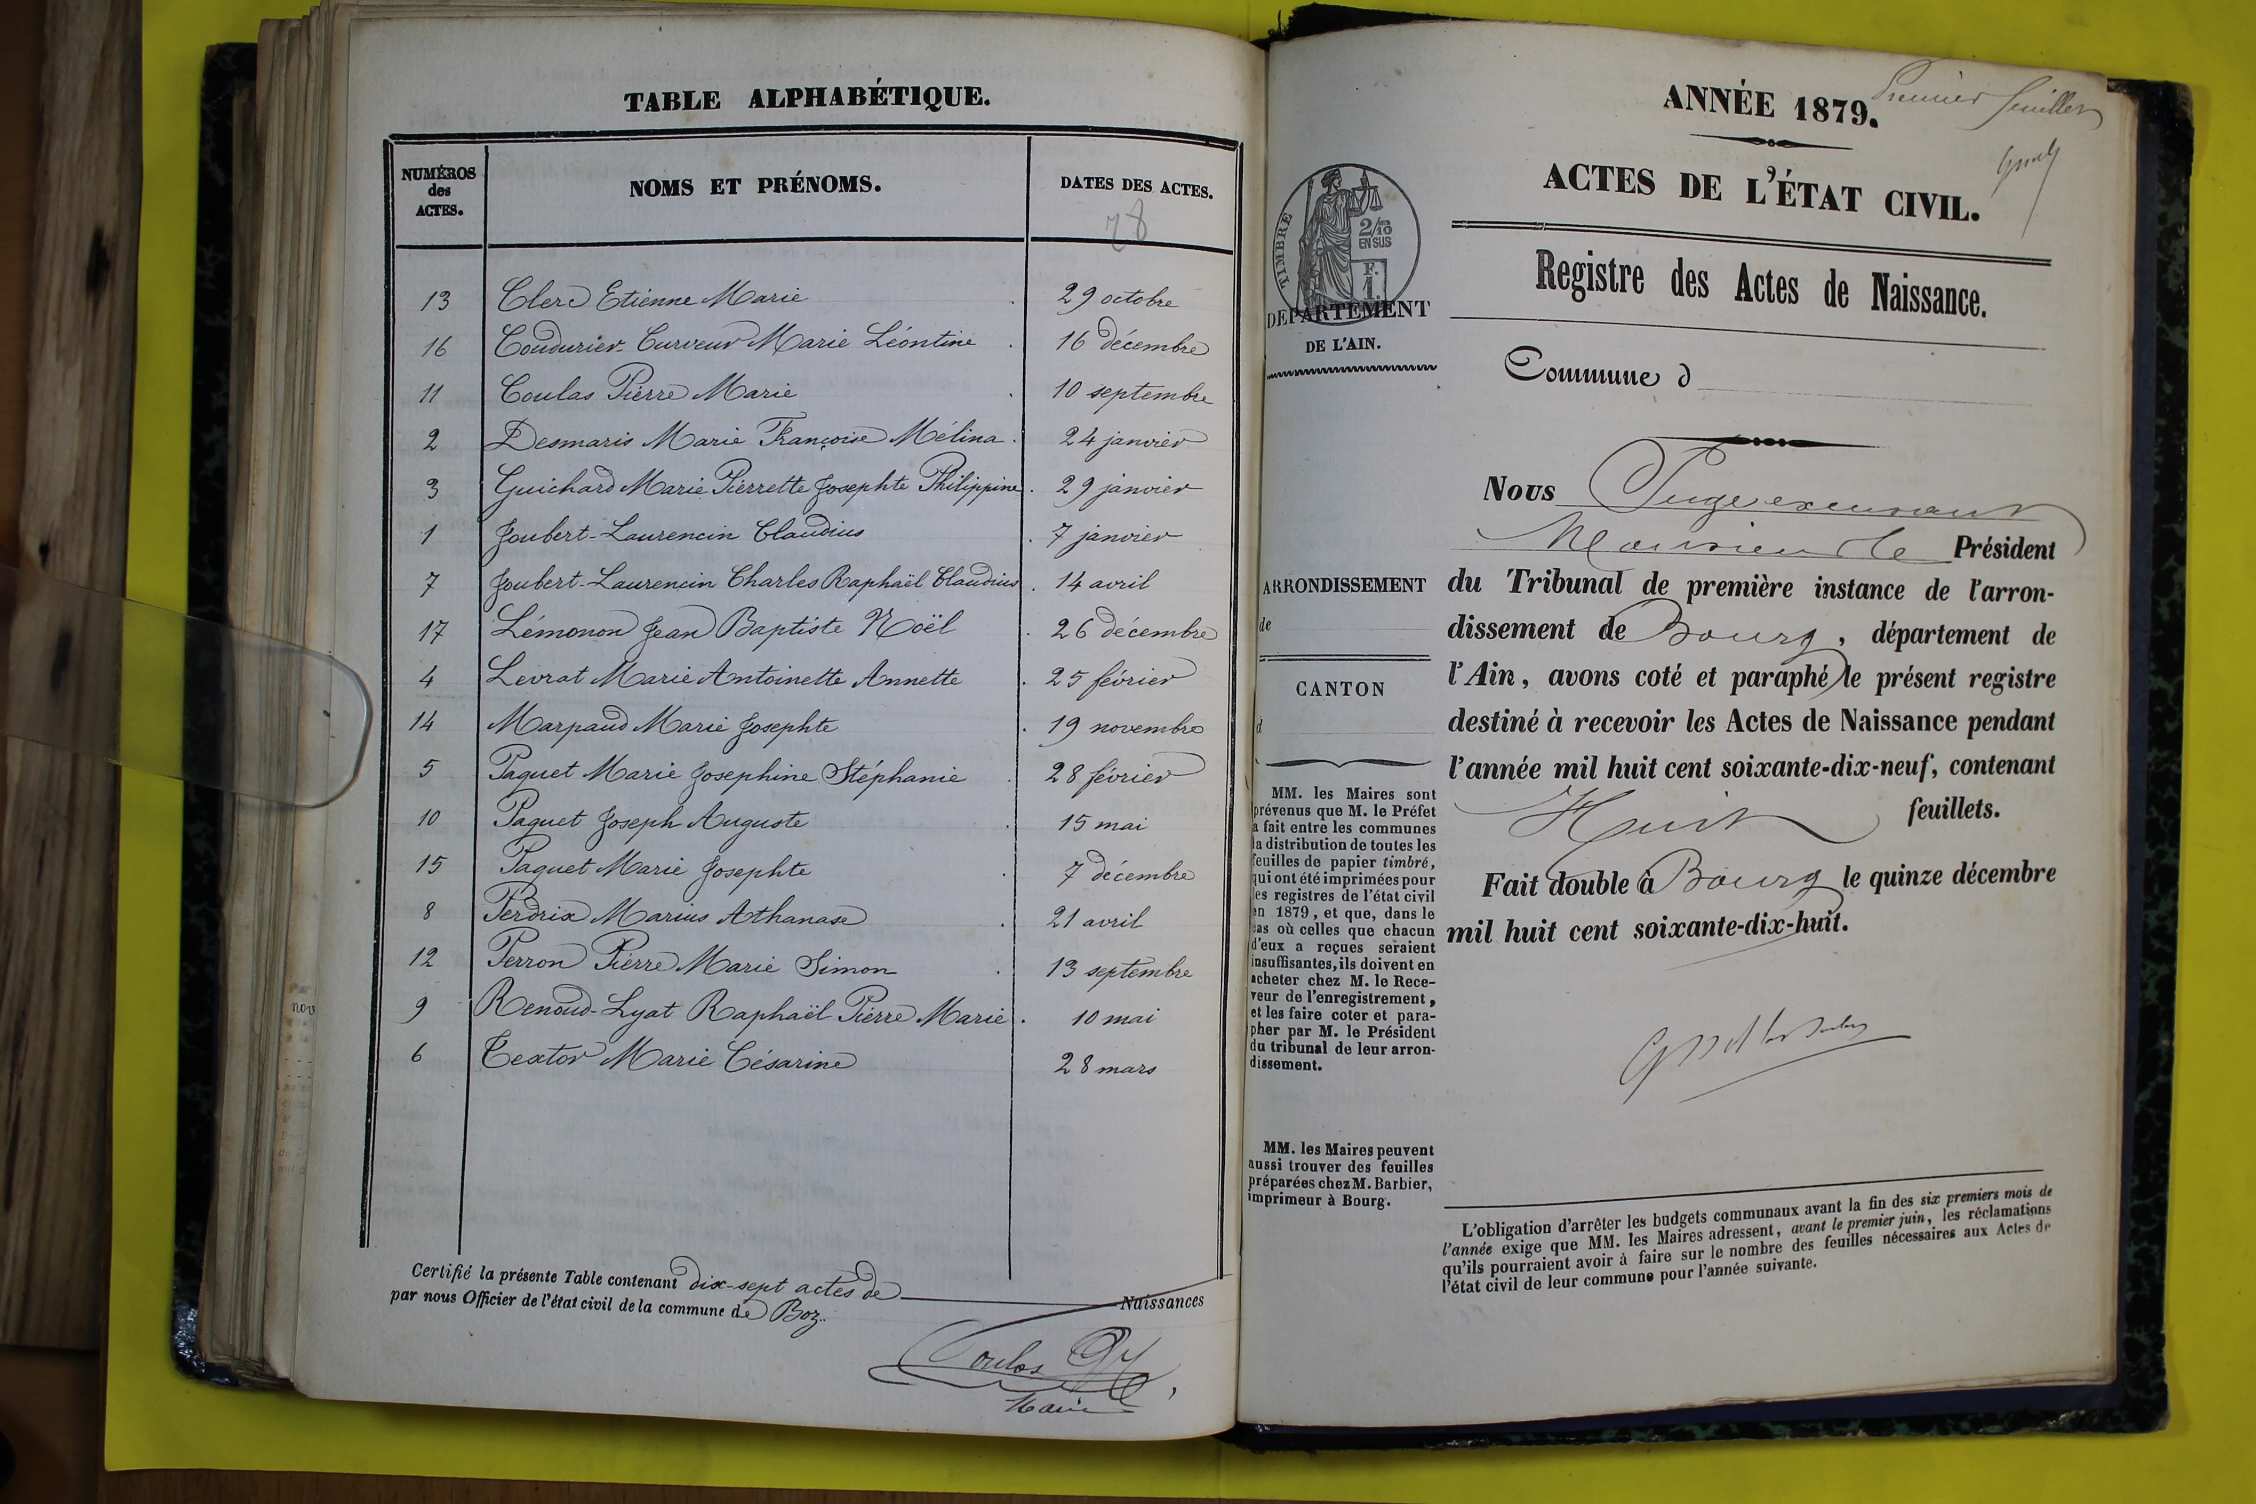 TABLE ALPHABÉTIQUE.
NUMÉROS des ACTES. NOMS ET PRÉNOMS. DATES DES ACTES.
78
13 Clerc Etienne Marie 29 octobre
16 Coudurier-Curveur Marie Léontine 16 décembre
11 Coulas Pierre Marie 10 septembre
2 Desmaris Marie Françoise Mélina 24 janvier
3 Guichard Marie Pierrette Josephte Philippine 29 janvier
1 Joubert-Laurencin Claudius 7 janvier
7 Joubert-Laurencin Charles Raphaël Claudius 14 avril
17 Lémonon Jean Baptiste Noël 26 décembre
4 Levrat Marie Antoinette Annette 25 février
14 Marpaud Marie Josephte 19 novembre
5 Paquet Marie Josephine Stéphanie 28 février
10 Paquet Joseph Auguste 15 mai
15 Paquet Marie Josephte 7 décembre
8 Perdrix Marius Athanase 21 avril
12 Perron Pierre Marie Simon 13 septembre
9 Renoud-Lyat Raphaël Pierre Marie 10 mai
6 Textor Marie Césarine 28 mars
Certifié la présente Table contenant dix-sept actes de Naissances
par nous Officier de l'état civil de la commune de Boz.
Coulas
Maire
nov
Premier feuillet
ANNÉE 1879.
ACTES DE L'ÉTAT CIVIL.
Registre des Actes de Naissance.
TIMBRE
2/10
EN SUS
F.
1
DÉPARTEMENT
DE L'AIN.
Commune d
Nous Juge excusant
Monsieur le Président
du Tribunal de première instance de l'arron-
dissement de Bourg, département de
l'Ain, avons coté et paraphé le présent registre
destiné à recevoir les Actes de Naissance pendant
l'année mil huit cent soixante-dix-neuf, contenant
Huit feuillets.
Fait double à Bourg le quinze décembre
mil huit cent soixante-dix-huit.
ARRONDISSEMENT
de
CANTON
d
MM. les Maires sont
prévenus que M. le Préfet
a fait entre les communes
la distribution de toutes les
feuilles de papier timbré,
qui ont été imprimées pour
les registres de l'état civil
en 1879, et que, dans le
cas où celles que chacun
d'eux a reçues seraient
insuffisantes, ils doivent en
acheter chez M. le Rece-
veur de l'enregistrement,
et les faire coter et para-
pher par M. le Président
du tribunal de leur arron-
dissement.
MM. les Maires peuvent
aussi trouver des feuilles
préparées chez M. Barbier,
imprimeur à Bourg.
L'obligation d'arrêter les budgets communaux avant la fin des six premiers mois de
l'année exige que MM. les Maires adressent, avant le premier juin, les réclamations
qu'ils pourraient avoir à faire sur le nombre des feuilles nécessaires aux Actes de
l'état civil de leur commune pour l'année suivante.